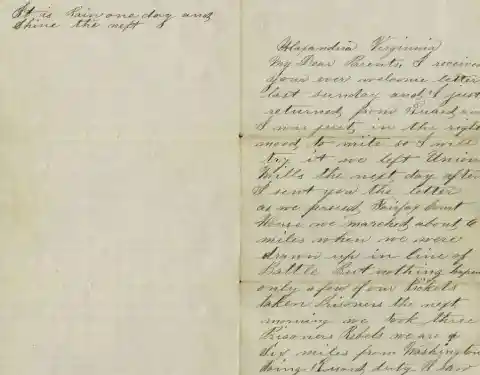 It is Rain one day and
Shine the next
Alaxandria Virginnia
My Dear Parents I received
your ever welcome letter
last sunday and I just
returned from Guard and
I was just in the right
mood to write so I will
try it we left Union
Mills the next day after
I sent you the letter
as we passed Fairfax Court
House we marched about 6
miles when we were
drawn up in line of
Battle But nothing
only a few of our Pickets
taken Prisoners the next
morning we took three
Prisoners Rebels we are
six miles from Washington
doing Guard duty